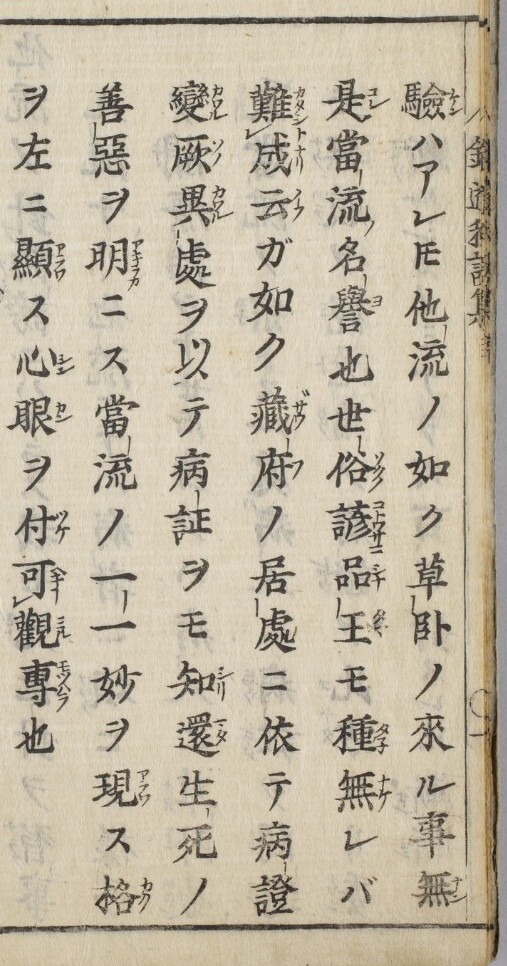 驗ハアレ𪜈他流ノ如ク草卧ノ來ル事無
是當流名譽也世俗諺品玉モ種無レバ
難成云ガ如ク藏府ノ居處ニ依テ病證
變厥異處ヲ以テ病証ヲモ知還生死ノ
善惡ヲ明ニス當流ノ一一妙ヲ現ス格
ヲ左ニ顯ス心眼ヲ付可觀專也